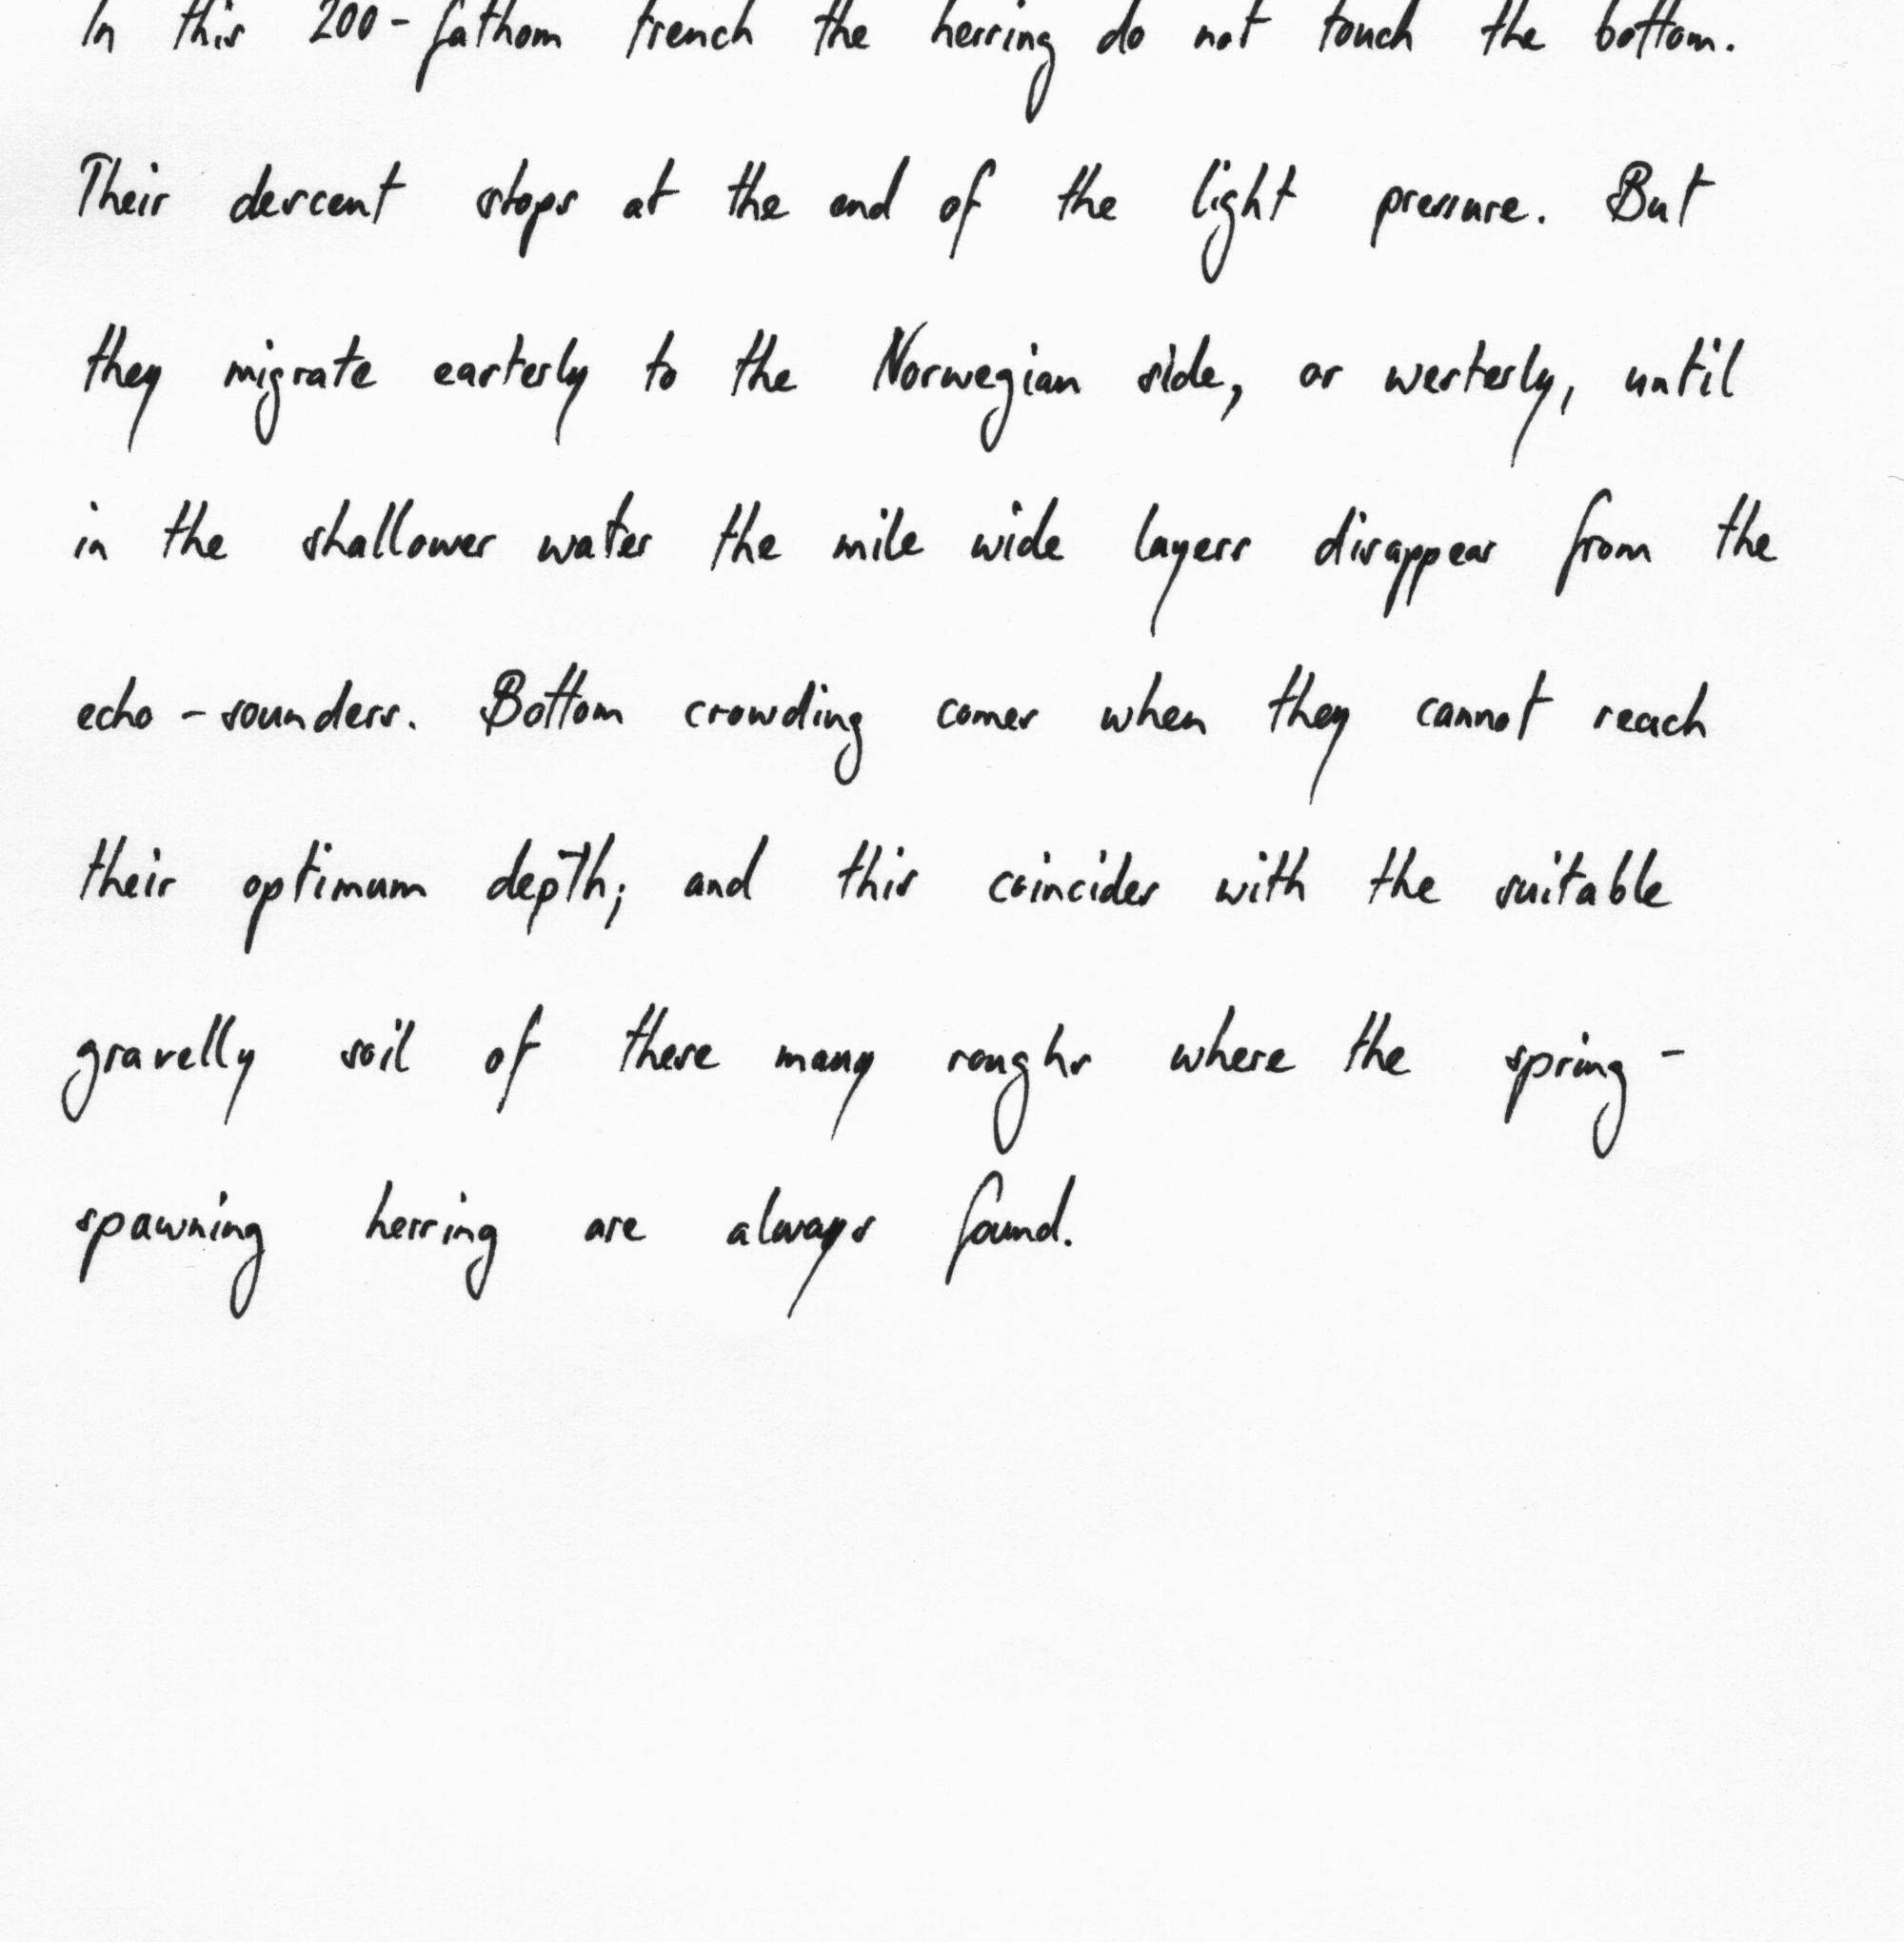 In this 200-fathom trench the herring do not touch the bottom.
Their descent stops at the end of the light pressure. But
they migrate easterly to the Norwegian side, or westerly, until
in the shallower water the mile wide layers disappear from the
echo-sounders. Bottom crowding comes when they cannot reach
their optimum depth; and this coincides with the suitable
gravelly soil of these many roughs where the spring-
spawning herring are always found.